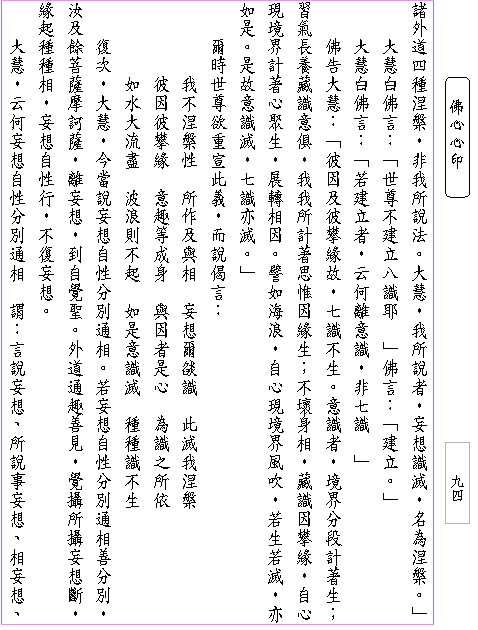 佛心心印
九四
諸外道四種涅槃，非我所說法。大慧，我所說者，妄想識滅，名為涅槃。」
大慧白佛言：「世尊不建立八識耶　」佛言：「建立。」
大慧白佛言：「若建立者，云何離意識，非七識　」
佛告大慧：「彼因及彼攀緣故，七識不生。意識者，境界分段計著生；
習氣長養藏識意俱，我我所計著思惟因緣生；不壞身相，藏識因攀緣，自心
現境界計著心聚生，展轉相因。譬如海浪，自心現境界風吹，若生若滅，亦
如是。是故意識滅，七識亦滅。」
爾時世尊欲重宣此義，而說偈言：
我不涅槃性　所作及與相　妄想爾燄識　此滅我涅槃
彼因彼攀緣　意趣等成身　與因者是心　為識之所依
如水大流盡　波浪則不起　如是意識滅　種種識不生
復次，大慧，今當說妄想自性分別通相。若妄想自性分別通相善分別，
汝及餘菩薩摩訶薩，離妄想，到自覺聖。外道通趣善見，覺攝所攝妄想斷，
緣起種種相，妄想自性行，不復妄想。
大慧，云何妄想自性分別通相　謂：言說妄想、所說事妄想、相妄想、